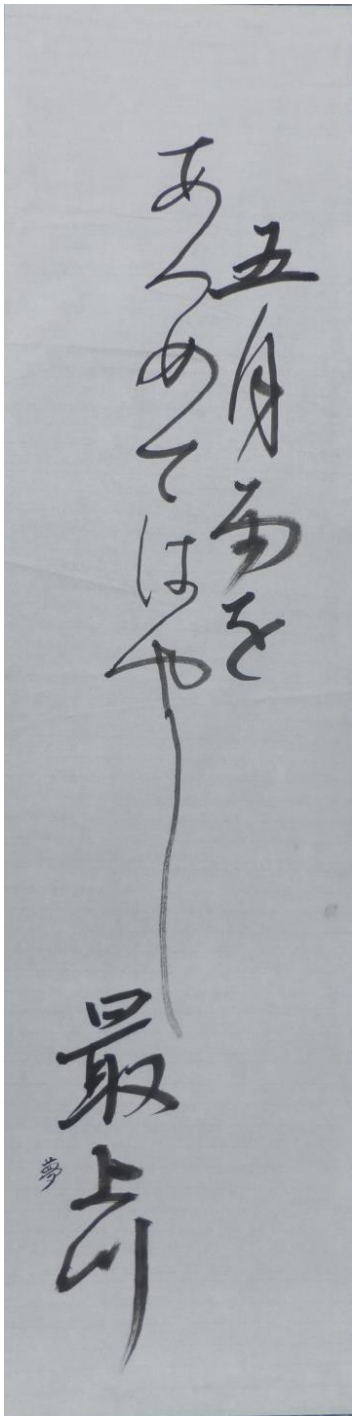 五月雨を
あつめてはやし
最上川
夢